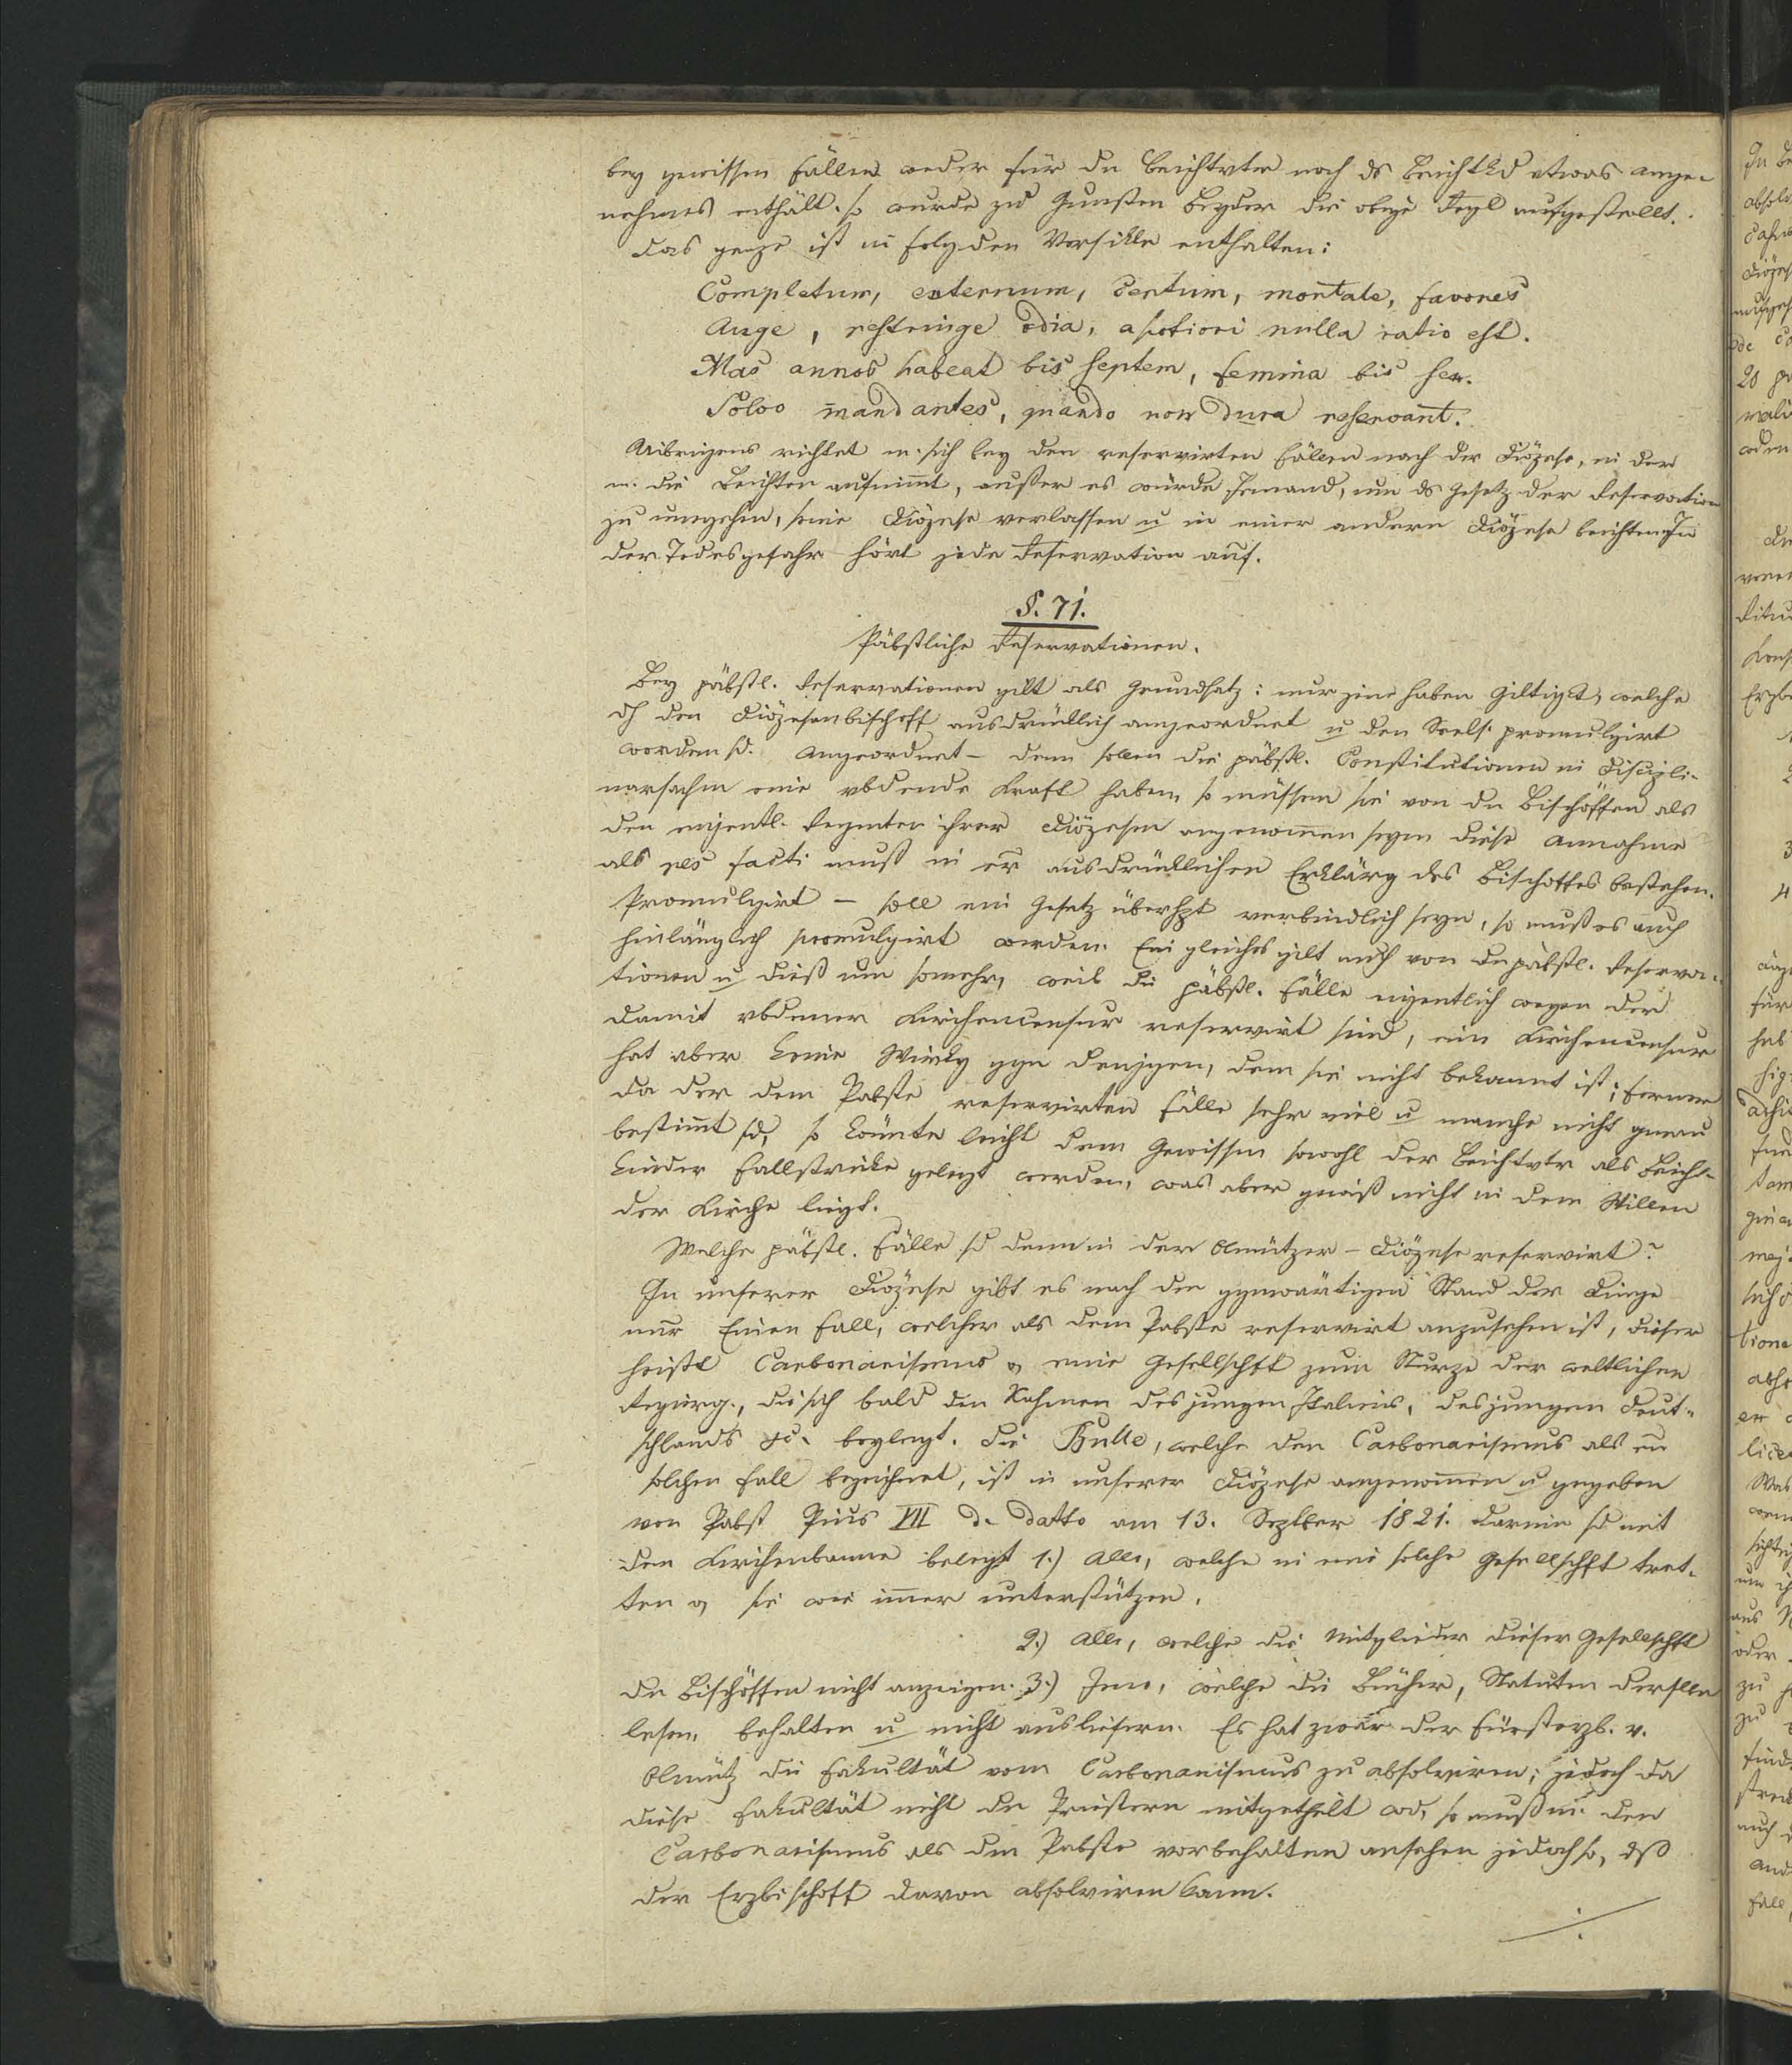 bey gewissen Fällen weder für dn Beichtvtr noch ds Beichtkd etwas ange-
nehmes enthält. so wurde zu Gunsten Beyder die obige Regl aufgestellt.
Das ganze ist in folgden Versikln enthalten:
Completum, externum, certum, mortale, favores
Auge, restringe odia, a potiori nulla ratio est.
Mas annos habeat bis septem, femina bis sex.
Solvo mandantes, quando non dura reservant.
Uibrigens richtet m. sich bey den reservirten Fällen nach der Diözese, in der
m. die Beichten aufnim̄t, außer es würde Jemand, um ds Gesetz der Reservation
zu umgehen, seine Diözese verlassen u in einer andern Diözese beichten. In
der Todesgefahr hört jede Reservation auf.
§. 71.
Päbstliche Reservationen.
Bey päbstl. Reservationen gilt als Grundsatz: nur jene haben Giltigkt, welche
dch den Diözesanbischoff ausdrücklich angeordnet u den Seels. promulgirt
worden sd. Angeordnet – denn sollen die päbstl. Constitutionen in Discipli-
narsachen eine vbdende Kraft haben, so müssen sie von dn Bischöffen als
den eigentl. Regenten ihrer Diözesen angenom̄en seyn diese Annahme
als res facti muß in er ausdrücklichen Erklärg des Bischoffes bestehen.
Promulgirt – soll ein Gesetz überhpt verbindlich seyn, so muß es auch
hinlänglich promulgirt werden. Ein gleiches gilt auch von dn päbstl. Reserva-
tionen u dieß um somehr, weil die päbstl. Fälle eigentlich wegen der
damit vbdenen Kirchencensur reservirt sind, ein Kirchencensur
hat aber keine Wirkg ggn denjgen, dem sie nicht bekannt ist; ferner
da der dem Pabste reservirten Fälle sehr viel u manche nicht genau
bestim̄t sd, so kön̄te leicht dem Gewissen sowohl der Beichtvtr als Beicht-
kinder Fallstricke gelegt werden, was aber gewiß nicht in dem Willen
der Kirche liegt.
Welche päbstl. Fälle sd denn in der Olmützer-Diözese reservirt?
In unserer Diözese gibt es nach dem ggnwärtigen Stand der Dinge
nur Einen Fall, welcher als dem Pabste reservirt anzusehen ist, dieser
heißt Carbonarismus, eine Gesellschft zum Sturze der weltlichen
Regierg., die sich bald den Nahmen des jungen Italiens, des jungen Deut-
schlands &c. beylegt. Die Bulle, welche den Carbonarismus als en
solchen Fall bezeichnet, ist in unserer Diözese angenom̄en u gegeben
von Pabst Pius VII d. datto am 13. Septber 1821. Darin sd mit
dem Kirchenbanne belegt 1.) Alle, welche in eine solche Gesellschft tret-
ten, sie wie im̄er unterstützen.
2.) Alle, welche die Mitglieder dieser Gesellschft
dn Bischöffen nicht anzeigen. 3.) Jene, welche die Bücher, Statuten derslbn
lesen, behalten u nicht ausliefern. Es hat zwar der Fürsterzb. v.
Olmütz die Fakultät vom Carbonarismus zu absolviren; jedoch da
diese Fakultät nicht dn Priestern mitgetheilt wd, so muß m. den
Carbonarismus als dem Pabste vorbehalten ansehen jedoch so, dß
der Erzbischoff davon absolviren kann.